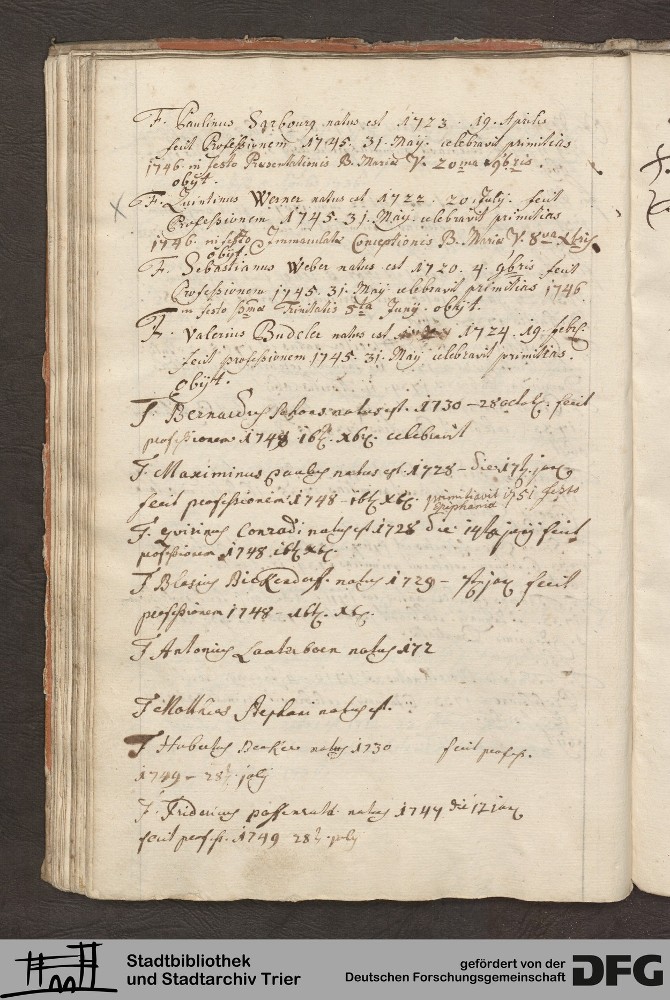 F. Paulinus Sarbourg natus est 1723. 19. Aprilis
fecit Professionem 1745. 31. Maij. celebravit primitias
1746. in festo Præsentationis B. Mariæ V. 20ma 9bris.
obijt.
F. Quintinus Werner natus est 1722. 20 Julij. fecit
Professionem 1745. 31. Maij. celebravit primitias
1746. in festo Immaculatæ Conceptionis B. Mariæ V. 8va Xbris
obijt.
F. Sebastianus Weber natus est 1720. 4. 9bris fecit
Professionem 1745. 31. Maij celebravit primitias 1746
in festo SSmæ Trinitatis 5ta Junij. obijt.
F. Valerius Budeler natus est 1724. 19. febr.
fecit professionem 1745. 31. Maij celebravit primitias.
obijt.
F. Bernardus natus est. 1730 - 28 octob. fecit
professionem 1748 16t. xbr. celebravit
F. Maximinus Paulus natus est. 1728 - die 17t. jan
fecit professionem 1748 - 16t xbr. primitiavit 1751 festo
Epiphaniæ
F. Quirinus Conradi natus est 1728 die 14ta fecit
professionem 1748 16t xbr.
F Blasius Bickendorf. natus 1729 - jan fecit
professionem 1748 - 16t. xbr.
F Antonius natus 172
F Matthias Stephani natus est.
F Hubertus Becker natus 1730 fecit profess.
1749 - 28t. julij
F. Fridericus natus 1747 die 12 jan
fecit profess. 1749 28t. julij
Stadtbibliothek
und Stadtarchiv Trier
gefördert von der
Deutschen Forschungsgemeinschaft
DFG